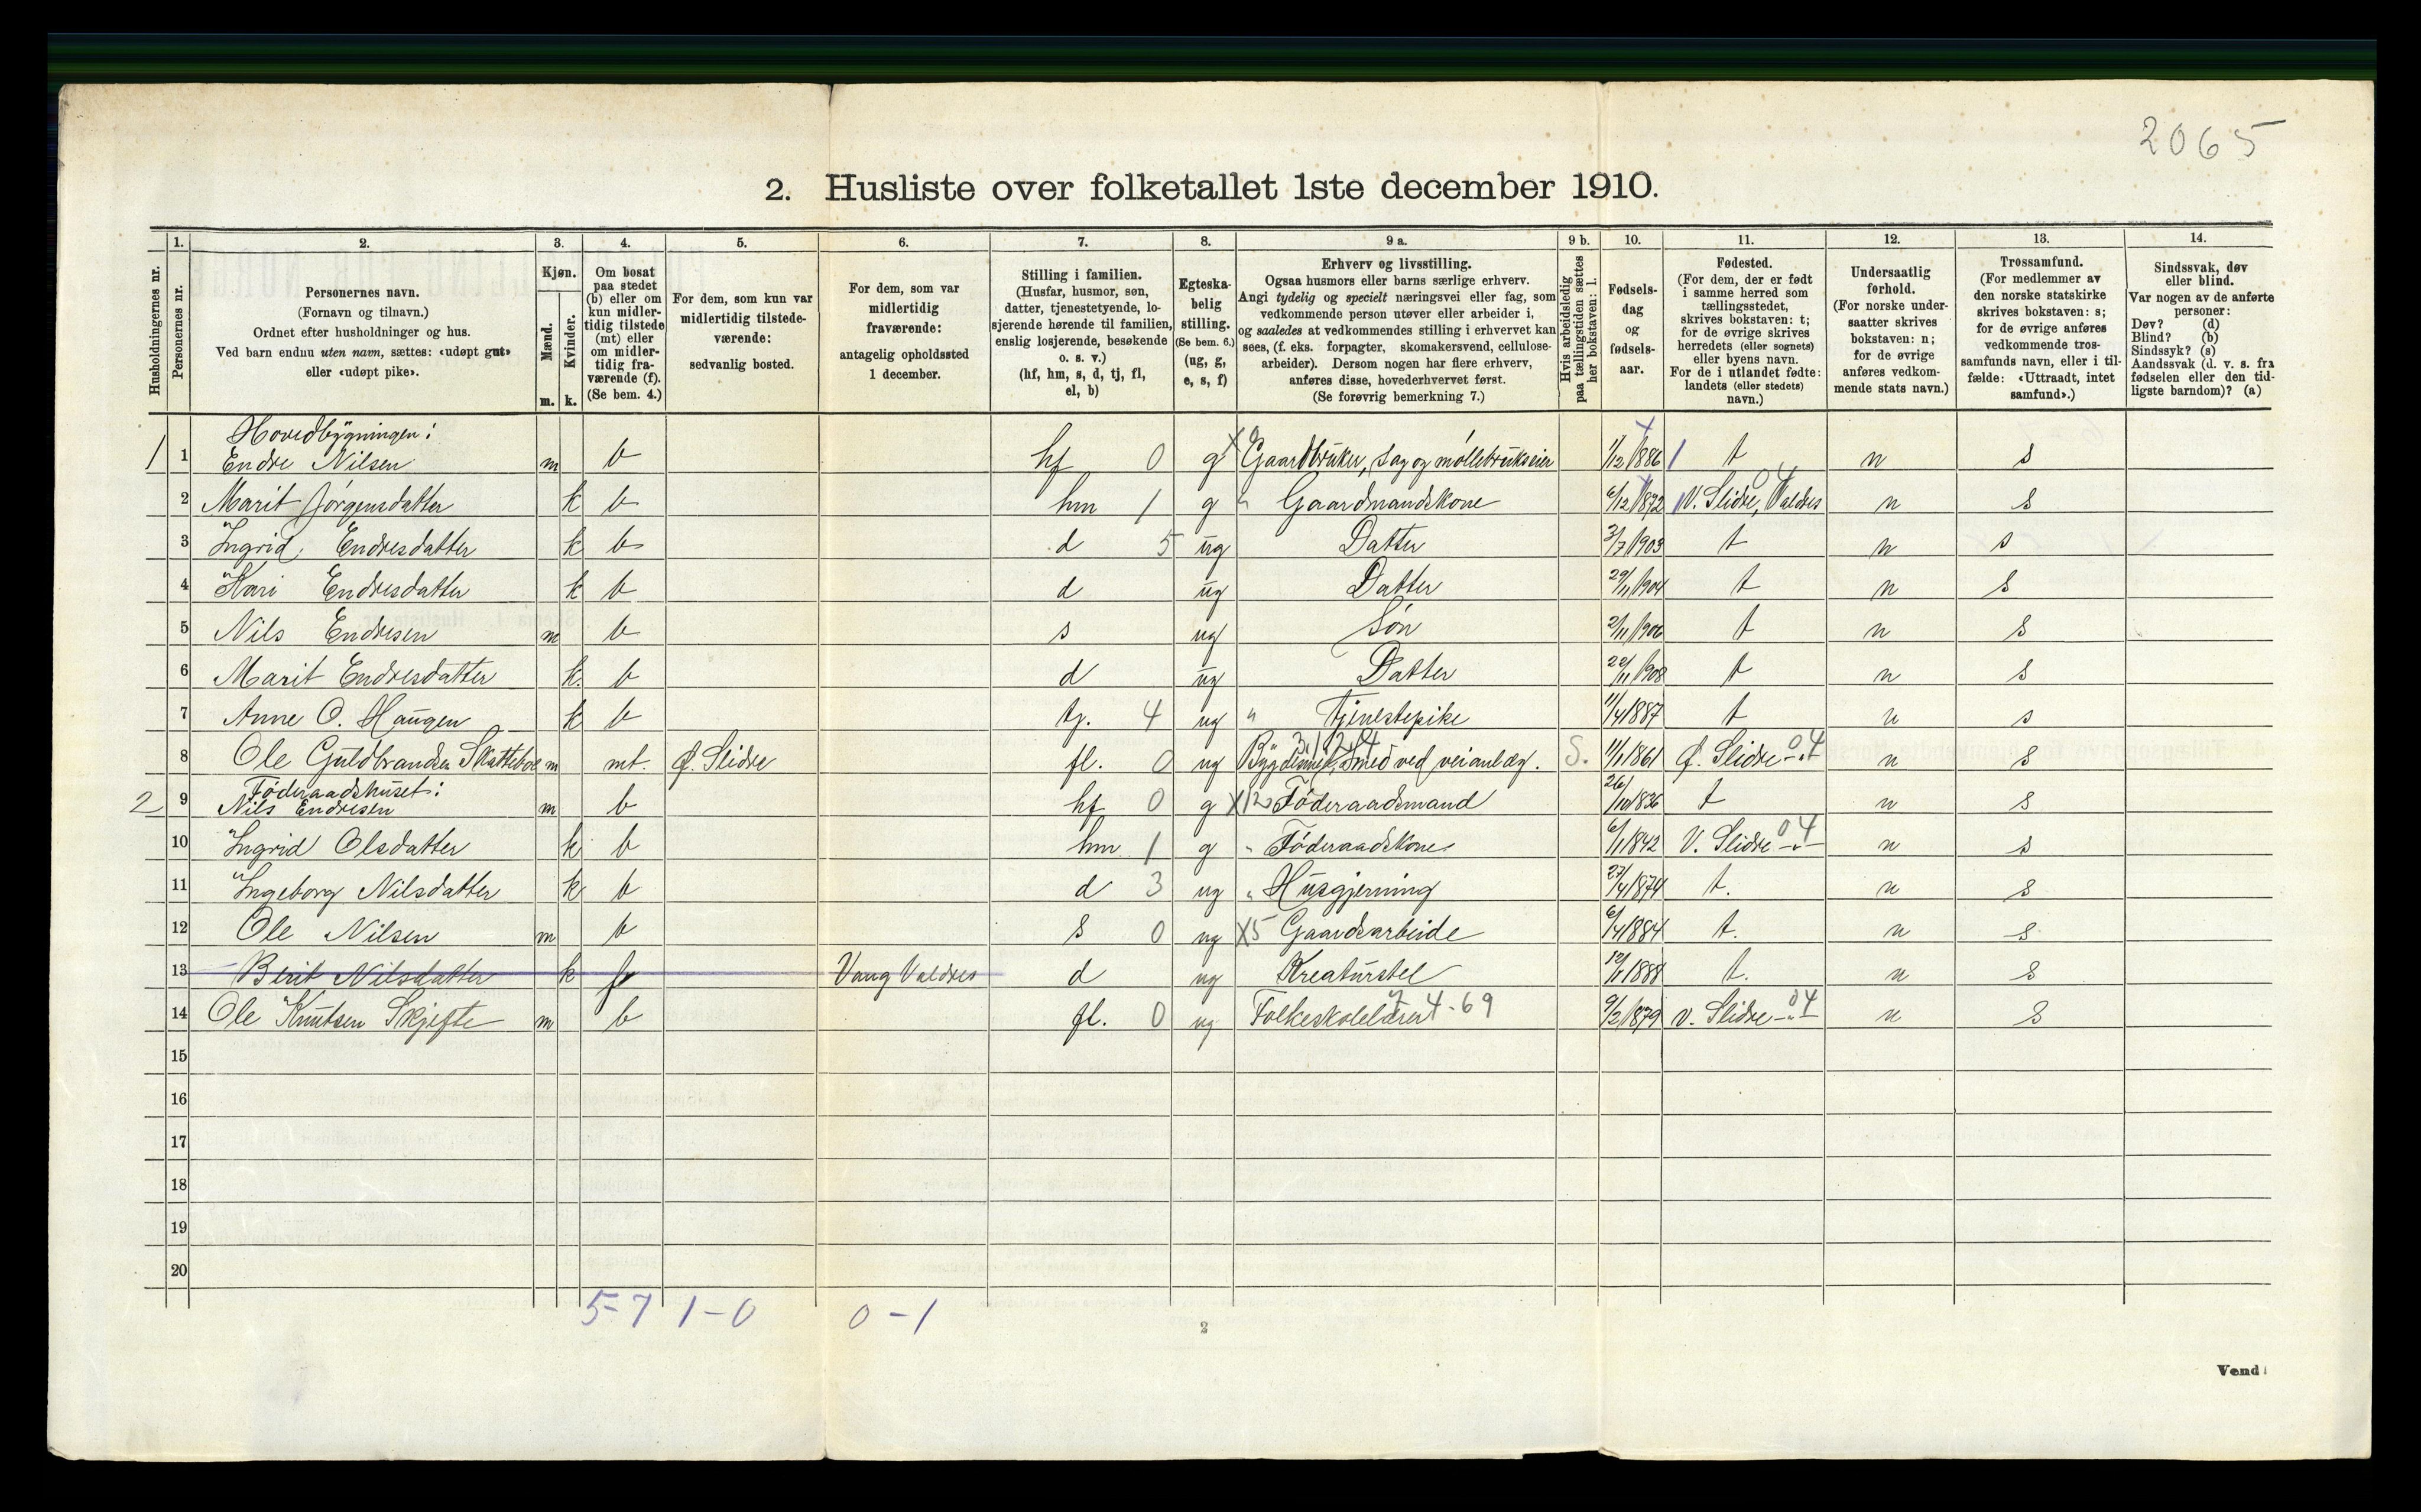 2065
2. Husliste over folketallet 1ste december 1910.
Husholdningernes nr.
1.
Personernes nr.
2.
Personernes navn.
(Fornavn og tilnavn.)
Ordnet efter husholdninger og hus.
Ved barn endnu uten navn, sættes: «udøpt gut»
eller «udøpt pike».
3.
Kjøn.
Mænd.
m.
Kvinder.
k.
4.
Om bosat
paa stedet
(b) eller om
kun midler-
tidig tilstede
(mt) eller
om midler-
tidig fra-
værende (f).
(Se bem. 4.)
5.
For dem, som kun var
midlertidig tilstede-
værende:
sedvanlig bosted.
6.
For dem, som var
midlertidig
fraværende:
antagelig opholdssted
1 december.
7.
Stilling i familien.
(Husfar, husmor, søn,
datter, tjenestetyende, lo-
sjerende hørende til familien,
enslig losjerende, besøkende
o. s. v.)
(hf, hm, s, d, tj, fl,
el, b)
8.
Egteska-
belig
stilling.
(Se bem. 6.)
(ug, g,
e, s, f)
9 a.
Erhverv og livsstilling.
Ogsaa husmors eller barns særlige erhverv.
Angi tydelig og specielt næringsvei eller fag, som
vedkommende person utøver eller arbeider i,
og saaledes at vedkommendes stilling i erhvervet kan
sees, (f. eks. forpagter, skomakersvend, cellulose-
arbeider). Dersom nogen har flere erhverv,
anføres disse, hovederhvervet først.
(Se forøvrig bemerkning 7.)
9 b.
Hvis arbeidsledig
paa tællingstiden sættes
her bokstaven: l.
10.
Fødsels-
dag
og
fødsels-
aar.
11.
Fødested.
(For dem, der er født
i samme herred som
tællingsstedet,
skrives bokstaven: t;
for de øvrige skrives
herredets (eller sognets)
eller byens navn.
For de i utlandet fødte:
landets (eller stedets)
navn.)
12.
Undersaatlig
forhold.
(For norske under-
saatter skrives
bokstaven: n;
for de øvrige
anføres vedkom-
mende stats navn.)
13.
Trossamfund.
(For medlemmer av
den norske statskirke
skrives bokstaven: s;
for de øvrige anføres
vedkommende tros-
samfunds navn, eller i til-
fælde: «Uttraadt, intet
samfund».)
14.
Sindssvak, døv
eller blind.
Var nogen av de anførte
personer:
Døv? (d)
Blind? (b)
Sindssyk? (s)
Aandssvak (d. v. s. fra
fødselen eller den tid-
ligste barndom)? (a)
Hovedbygningen:
1 1 Endre Nilsen m b hf 0 g X Gaardbruker, Sag og møllebrukseier 1/12 1886 t n s
2 Marit Jørgensdatter k b hm 1 g " Gaardmandskone 6/12 1872 V. Slidre, Valdres 04 n s
3 Ingrid Endresdatter k b d 5 ug Datter 3/7 1903 t n s
4 Kari Endresdatter k b d ug Datter 29/11 1904 t n s
5 Nils Endresen m b s ug Søn 2/11 1906 t n s
6 Marit Endresdatter k. b d ug Datter 22/11 1908 t n s
7 Anne O. Haugen k b tj. 4 ug " Tjenestepike 11/4 1887 t n s
8 Ole Guldbrandsen Skattebo m mt. Ø. Slidre fl. 0 ug Smed ved veianlæg. S. 11/1 1861 Ø. Slidre 04 n s
Føderaadshuset:
2 9 Nils Endresen m b hf 0 g X12 Føderaadsmand 26/10 1836 t n s
10 Ingrid Olsdatter k b hm 1 g " Føderaadskone 6/1 1842 V. Slidre 04 n s
11 Ingeborg Nilsdatter k b d 3 ug " Husgjerning 27/4 1874 t. n s
12 Ole Nilsen m b s 0 ug X5 Gaardsarbeide 6/4 1884 t. n s
13 Berit Nilsdatter k f Vang Valdres d ug Kreaturstel 12/1 1888 t. n s
14 Ole Knutsen Skjefte m b fl. 0 ug Folkeskolelærer 4-69 9/2 1879 v. Slidre 04 n s
15
16
17
18
19
20
5-7 1-0 0-1
2
Vend!